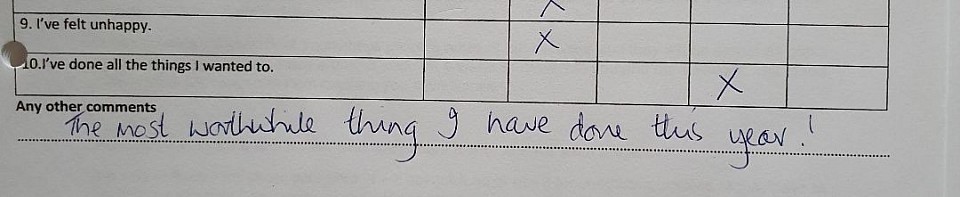 9. I've felt unhappy. X
10.I've done all the things I wanted to. X
Any other comments
The most worthwhile thing I have done this year!